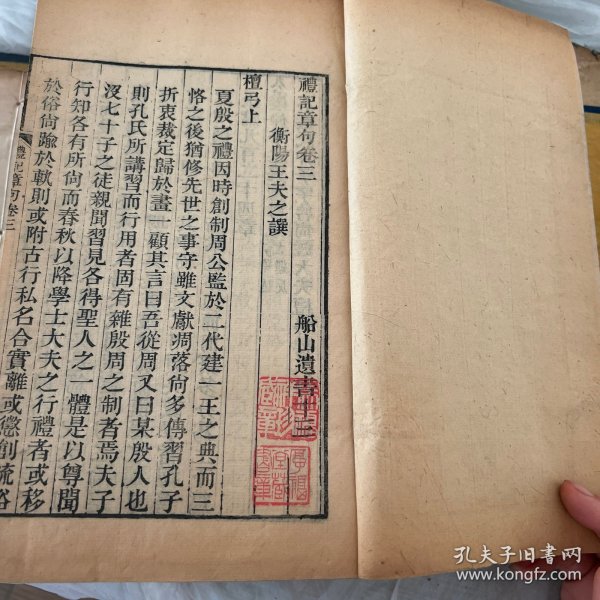 禮記章句卷三
船山遺書十三
衡陽王夫之譔
檀弓上
夏殷之禮因時創制周公監於二代建一王之典而三
恪之後猶修先世之事守雖文獻凋落尚多傳習孔子
折衷裁定歸於畫一顧其言曰吾從周又曰某殷人也
則孔氏所講習而行用者固有雜殷周之制者焉夫子
沒七十子之徒親聞習見各得聖人之一體是以尊聞
行知各有所尚而春秋以降學士大夫之行禮者或移
於俗尚踰於軌則或附古行私名合實離或懲創流俗
禮記章句卷三
孔夫子旧书网
www.kongfz.com